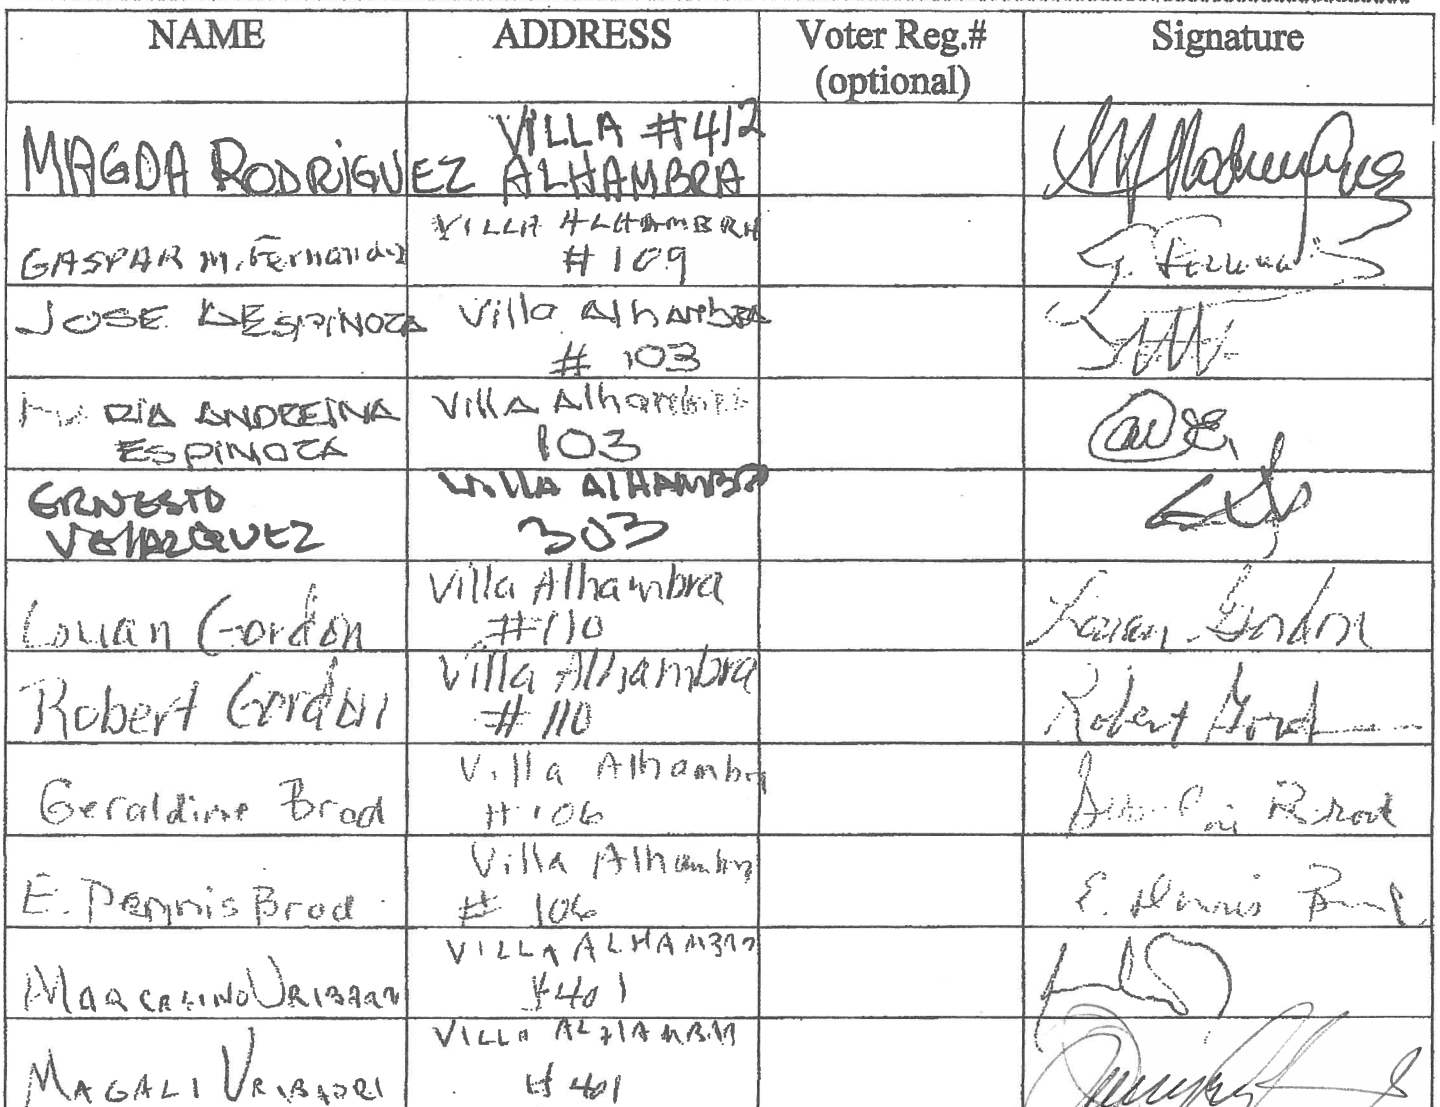 NAME ADDRESS Voter Reg.# Signature
(optional)
MAGDA RODRIGUEZ VILLA #412
ALHAMBRA
GASPAR M. Fernandez VILLA ALHAMBRA
#109 G. Fernandez
JOSE ESPINOZA Villa Alhambra
# 103
MARIA ANDREINA Villa Alhambra
ESPINOZA 103
ERNESTO VILLA ALHAMBRA
VELAZQUEZ 303
Louan Gordon Villa Alhambra
#110 Louan Gordon
Robert Gordon Villa Alhambra
# 110 Robert Gordon
Geraldine Brod Villa Alhambra
# 106 Brod
E. Dennis Brod Villa Alhambra
# 106 E. Dennis Brod
MARCELINO VILLA ALHAMBRA
#401
MAGALI VILLA ALHAMBRA
#401